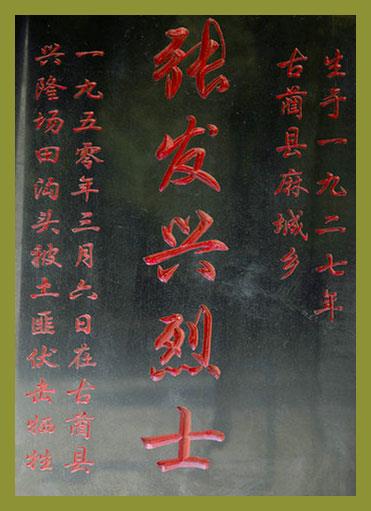 生于一九二七年
古蔺县麻城乡
张发兴烈士
一九五零年三月六日在古蔺县
兴隆场田沟头被土匪伏击牺牲